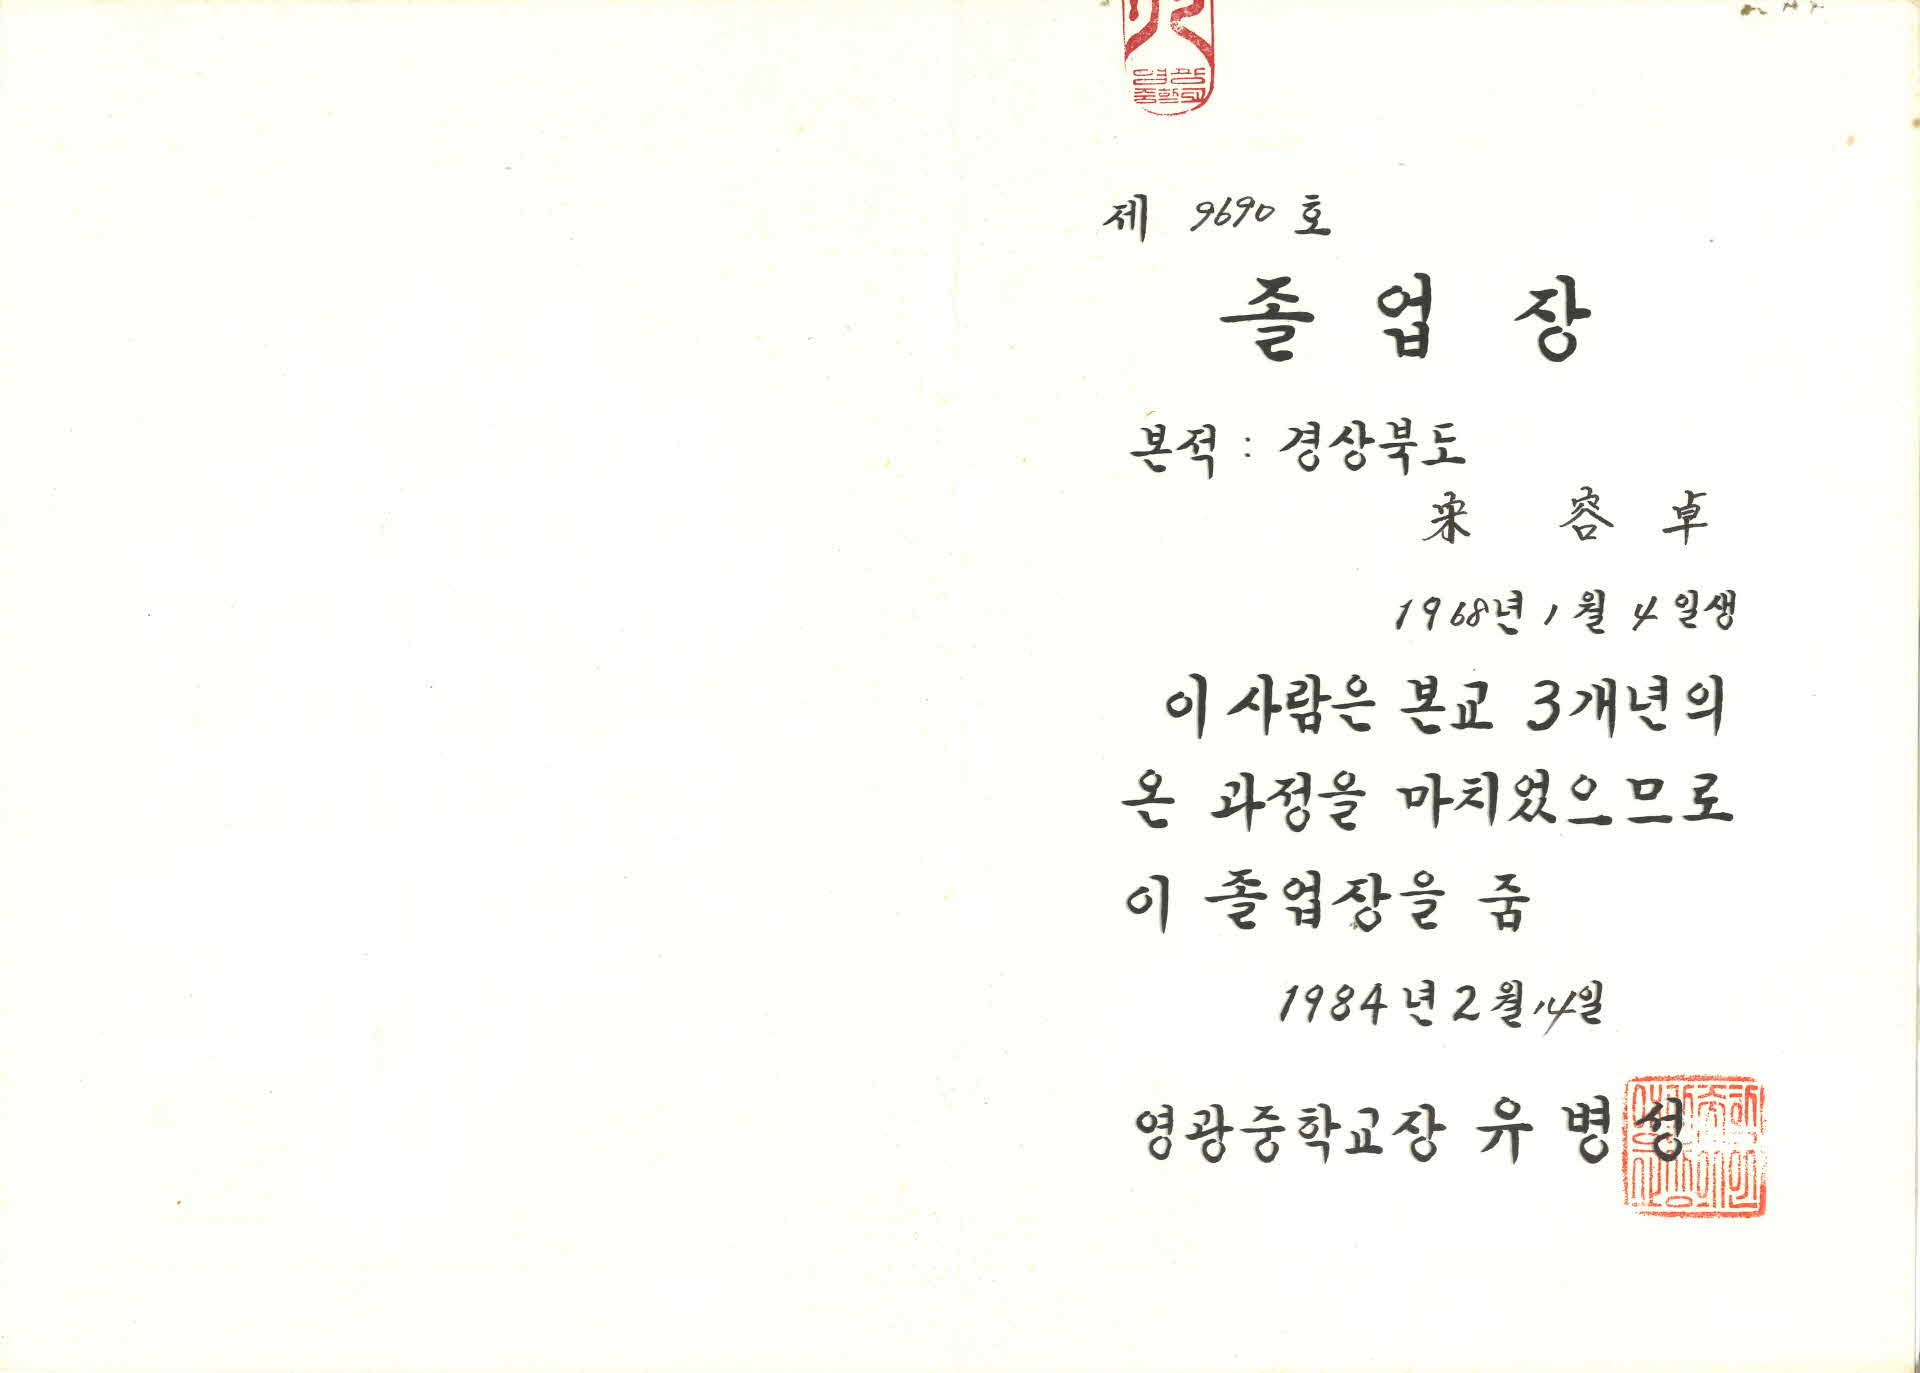 제 9690 호
졸 업 장
본적 : 경상북도
宋 容 卓
1968년 1월 4일생
이 사람은 본교 3개년의
온 과정을 마치었으므로
이 졸업장을 줌
1984년 2월 14일
영광중학교장 유병성